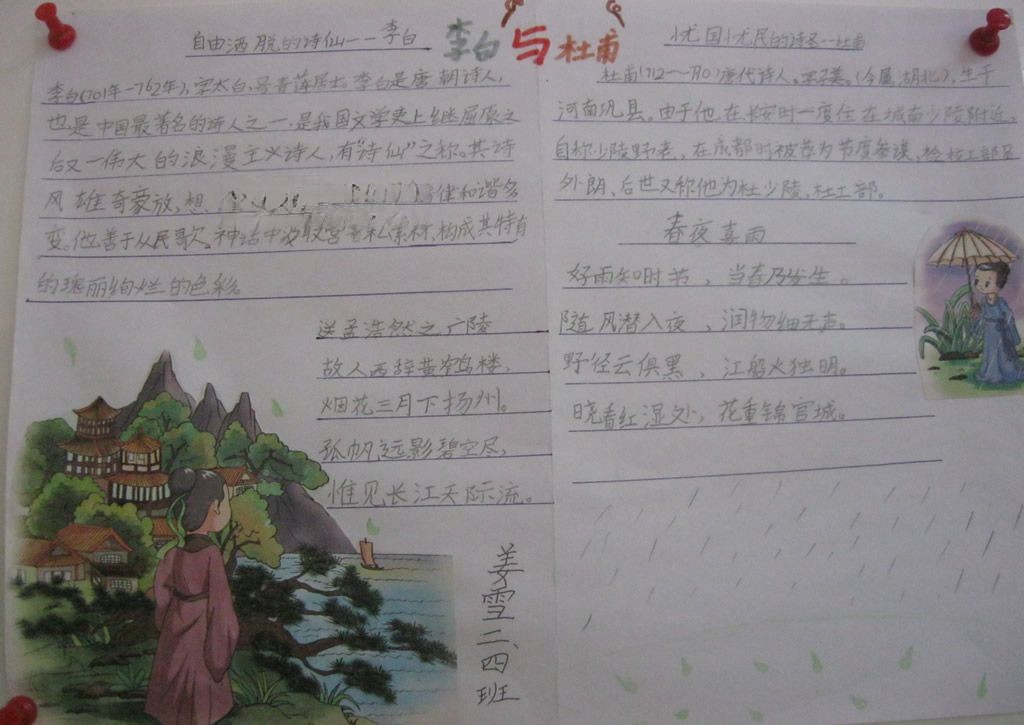 李白与杜甫
自由洒脱的诗仙——李白
李白(701年-762年),字太白,号青莲居士。李白是唐朝诗人,
也是中国最著名的诗人之一,是我国文学史上继屈原之
后又一伟大的浪漫主义诗人,有"诗仙"之称。其诗
风雄奇豪放,想 律和谐多
变。他善于从民歌、神话中汲取营养和素材,构成其特有
的瑰丽绚烂的色彩。
送孟浩然之广陵
故人西辞黄鹤楼,
烟花三月下扬州。
孤帆远影碧空尽,
惟见长江天际流。
姜雪二、四班
忧国忧民的诗圣--杜甫
杜甫(712—770)唐代诗人。字子美。(今属湖北),生于
河南巩县。由于他在长安时一度住在城南少陵附近,
自称少陵野老,在成都时被荐为节度参谋,检校工部员
外朗、后世又称他为杜少陵、杜工部。
春夜喜雨
好雨知时节,当春乃发生。
随风潜入夜,润物细无声。
野径云俱黑,江船火独明。
晓看红湿处,花重锦官城。